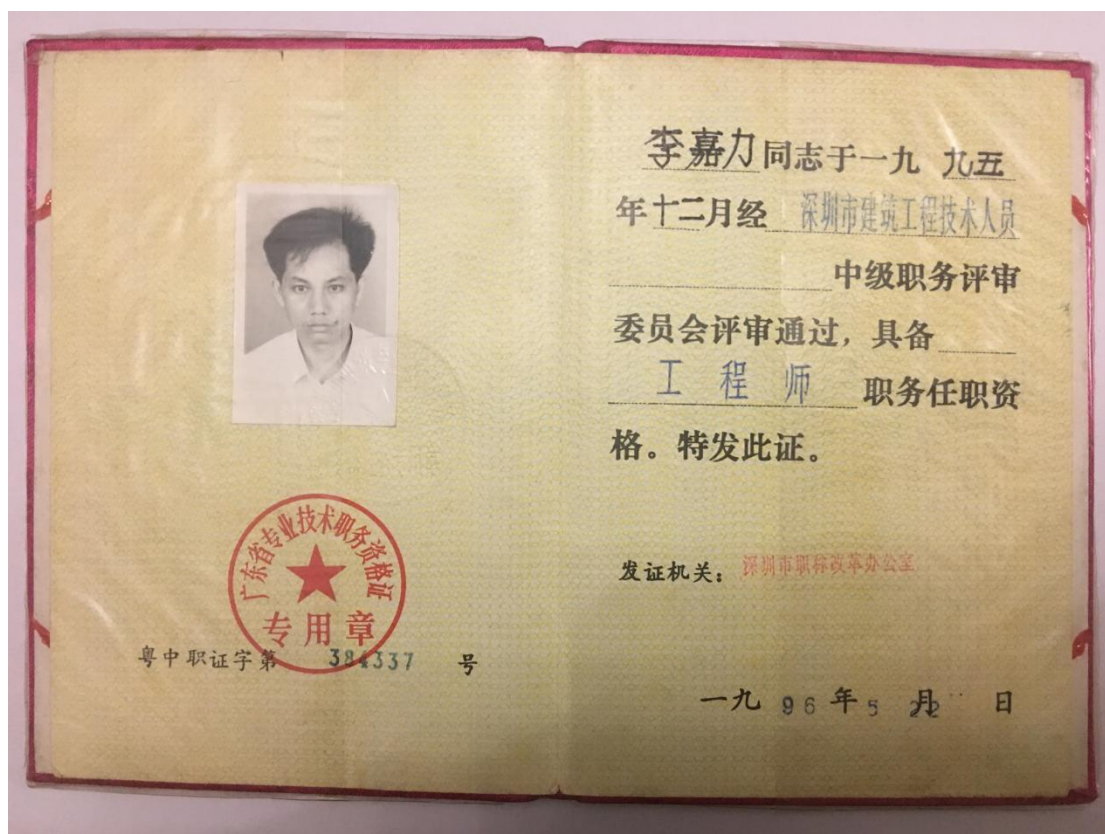 广东省专业技术职务资格证
专用章
粤中职证字第 384337 号
李嘉力同志于一九九五
年十二月经 深圳市建筑工程技术人员
中级职务评审
委员会评审通过，具备
工程师 职务任职资
格。特发此证。
发证机关：深圳市职称改革办公室
一九96年5月22日